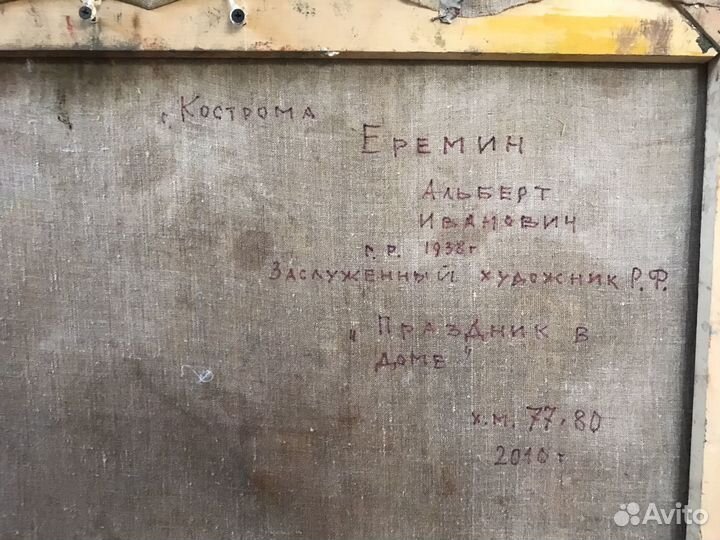 г. Кострома
Еремин
Альберт
Иванович
г.р. 1938г
Заслуженный художник Р.Ф.
„Праздник в
доме"
х.м. 77×80
2010 г
Avito